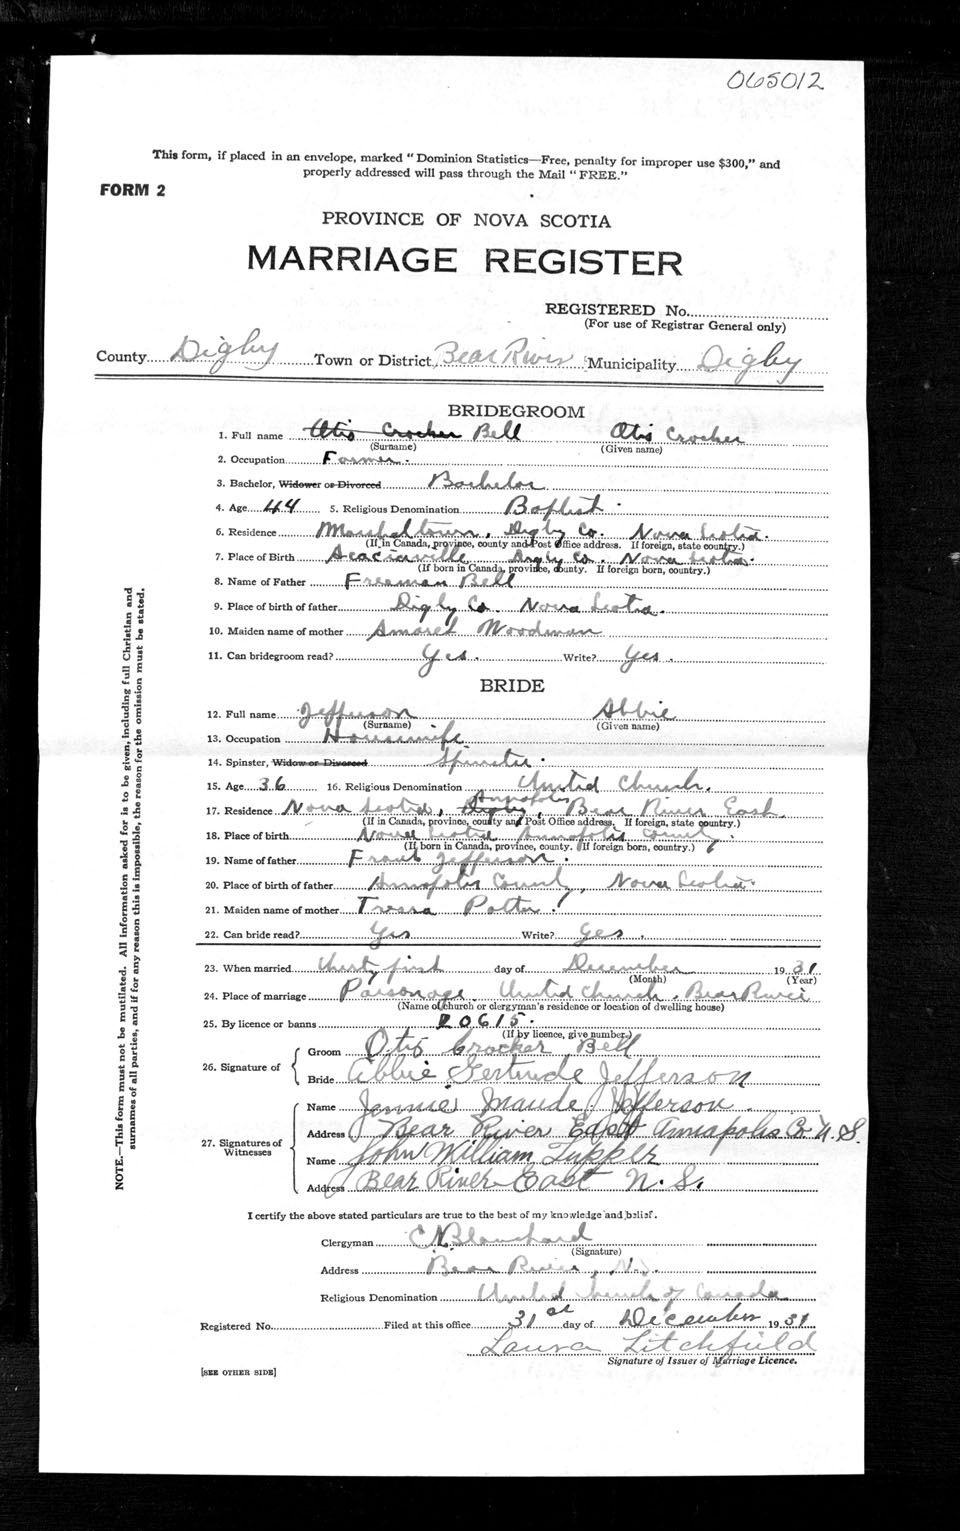 065012
This form, if placed in an envelope, marked "Dominion Statistics—Free, penalty for improper use $300," and
properly addressed will pass through the Mail "FREE."
FORM 2
PROVINCE OF NOVA SCOTIA
MARRIAGE REGISTER
REGISTERED No.
(For use of Registrar General only)
County Digby Town or District Bear River Municipality Digby
BRIDEGROOM
1. Full name Otis Crocker Bell Otis Crocker
(Surname) (Given name)
2. Occupation Farmer.
3. Bachelor, Widower or Divorced Bachelor
4. Age 44 5. Religious Denomination Baptist.
6. Residence Marshaltown, Digby Co. Nova Scotia.
(If in Canada, province, county and Post Office address. If foreign, state country.)
7. Place of Birth Acaciaville Digby Co. Nova Scotia.
(If born in Canada, province, county. If foreign born, country.)
8. Name of Father Freeman Bell
9. Place of birth of father Digby Co. Nova Scotia.
10. Maiden name of mother Woodman
11. Can bridegroom read? Yes. Write? Yes.
BRIDE
12. Full name Jefferson Abbie
(Surname) (Given name)
13. Occupation Housewife
14. Spinster, Widow or Divorced Spinster.
15. Age 36 16. Religious Denomination United Church.
Annapolis
17. Residence Nova Scotia, Digby, Bear River East
(If in Canada, province, county and Post Office address. If foreign, state country.)
18. Place of birth Nova Scotia Annapolis County.
(If born in Canada, province, county. If foreign born, country.)
19. Name of father Frank Jefferson.
20. Place of birth of father Annapolis County, Nova Scotia.
21. Maiden name of mother Tressa Potter.
22. Can bride read? Yes Write? Yes.
23. When married thirty first day of December 1931
(Month) (Year)
24. Place of marriage Parsonage United Church. Bear River
(Name of church or clergyman's residence or location of dwelling house)
25. By licence or banns 20615.
(If by licence, give number.)
26. Signature of
Groom Otis Crocker Bell
Bride Abbie Gertrude Jefferson
27. Signatures of Witnesses
Name Jennie Maude Jefferson.
Address Bear River East Annapolis Co. N.S.
Name John William Tupper
Address Bear River East N.S.
I certify the above stated particulars are true to the best of my knowledge and belief.
Clergyman C N Blanchard
(Signature)
Address Bear River, N.S.
Religious Denomination United Church of Canada
Registered No. Filed at this office 31st day of December 1931
Laura Litchfield
Signature of Issuer of Marriage Licence.
[SEE OTHER SIDE]
NOTE.—This form must not be mutilated. All information asked for is to be given, including full Christian and
surnames of all parties, and if for any reason this is impossible, the reason for the omission must be stated.